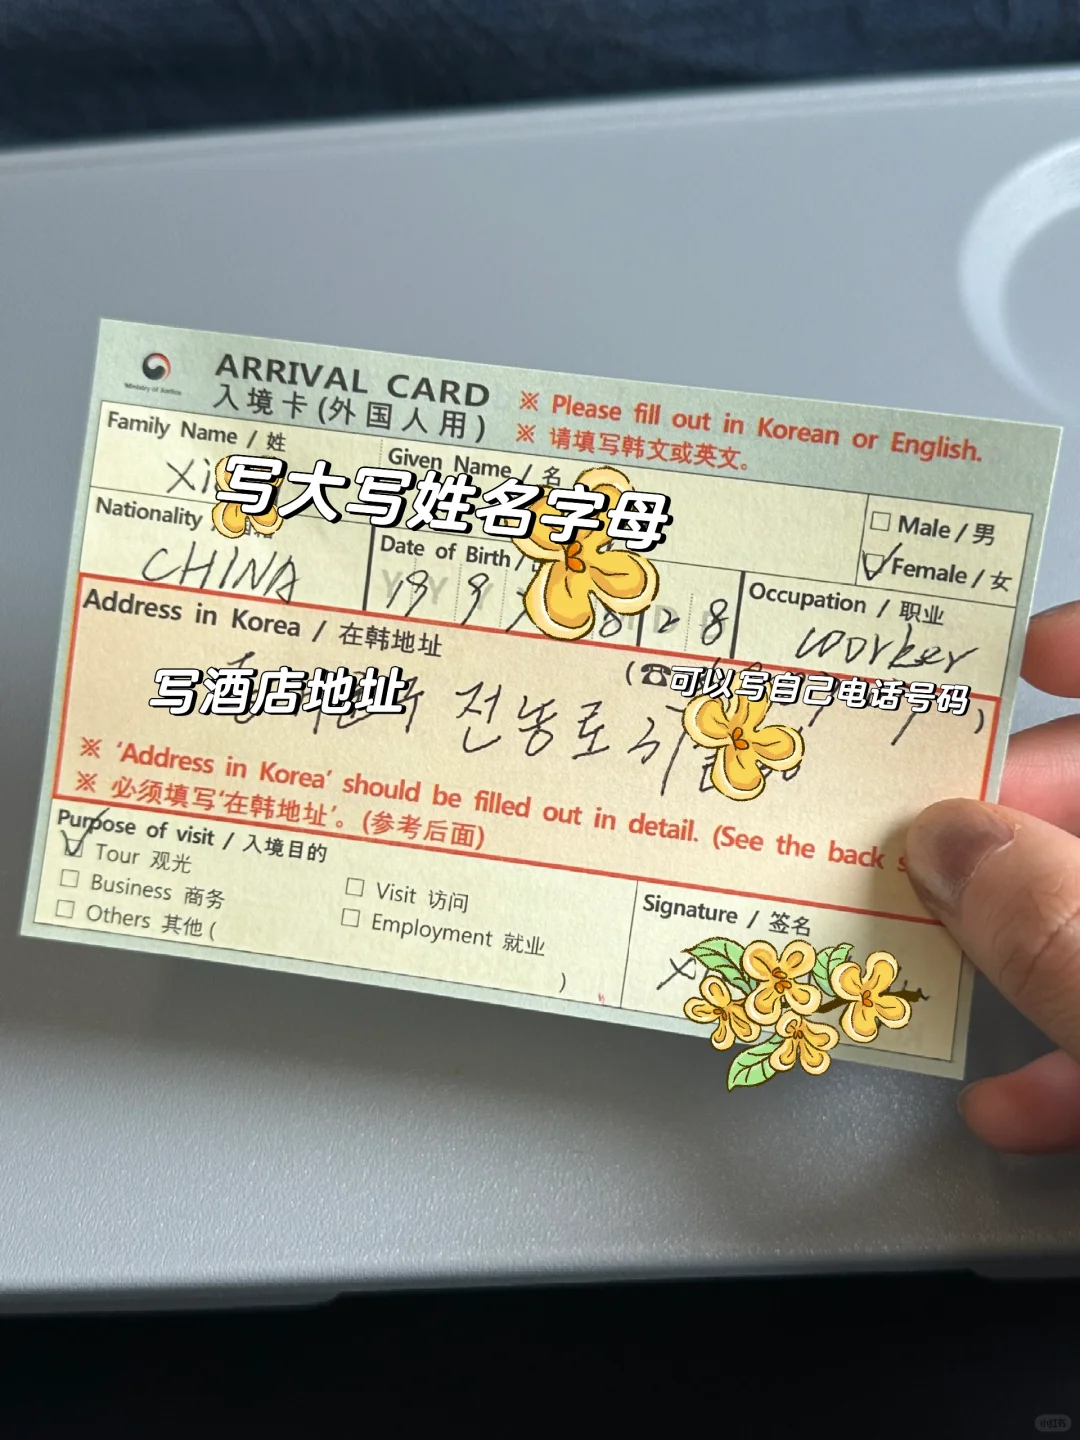 Ministry of Justice
ARRIVAL CARD
入境卡(外国人用)
※ Please fill out in Korean or English.
※ 请填写韩文或英文。
Family Name / 姓
Given Name / 名
写大写姓名字母
□ Male / 男
Female / 女
Nationality
CHINA
Date of Birth /
19 9
2 8
Occupation / 职业
worker
Address in Korea / 在韩地址
写酒店地址
(☎ 可以写自己电话号码 )
전농로
※ 'Address in Korea' should be filled out in detail. (See the back
※ 必须填写'在韩地址'。(参考后面)
Purpose of visit / 入境目的
Tour 观光
□ Business 商务
□ Others 其他 ( )
□ Visit 访问
□ Employment 就业
Signature / 签名
小红书